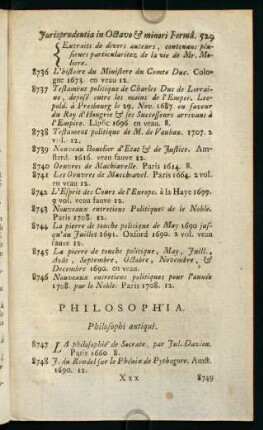 Jurisprudentia in Octavo & minori Formâ. 529
Extraits de divers auteurs, contenans plu-
sieurs particularitez de la vie de Mr. Mo-
liere.
8736 L'histoire du Ministere du Comte Duc. Colo-
gne 1673. en veau 12.
8737 Testament politique de Charles Duc de Lorrai-
ne, deposé entre les mains de l'Emper. Leo-
pold. à Presbourg le 29. Nov. 1687 en faveur
du Roy d'Hongrie & ses Successeurs arrivans à
l'Empire. Lipsic 1696 en veau. 8.
8738 Testament politique de M. de Vauban. 1707. 2
vol. 12.
8739 Nouveau Bouclier d'Etat & de Justice. Am-
sterd. 1616. veau fauve 12.
8740 Oeuvres de Machiavelle. Paris 1614. 8.
8741 Les Oeuvres de Macchiavel. Paris 1664. 2 vol.
en veau 12.
8742 L'Esprit des Cours de l'Europe. à la Haye 1699.
9 vol. veau fauve 12.
8743 Nouveaux entretiens Politiques de le Noble.
Paris 1708. 12.
8744 La pierre de touche politique de May 1690 jus-
qu'au Juillet 1691. Oxford 1690. 2 vol. veau
fauve 12.
8745 La pierre de touche politique, May, Juill.,
Août, Septembre, Octobre, Novembre, &
Decembre 1690. en veau.
8746 Nouveaux entretiens politiques pour l'année
1708. par le Noble. Paris 1708. 12.
PHILOSOPHIA.
Philosophi antiqui.
8747 LA philosophie de Socrate, par Jul. Davion.
Paris 1660. 8.
8748 J. du Rondel sur le Phénix de Pythagore. Amst.
1690. 12.
Xxx 8749